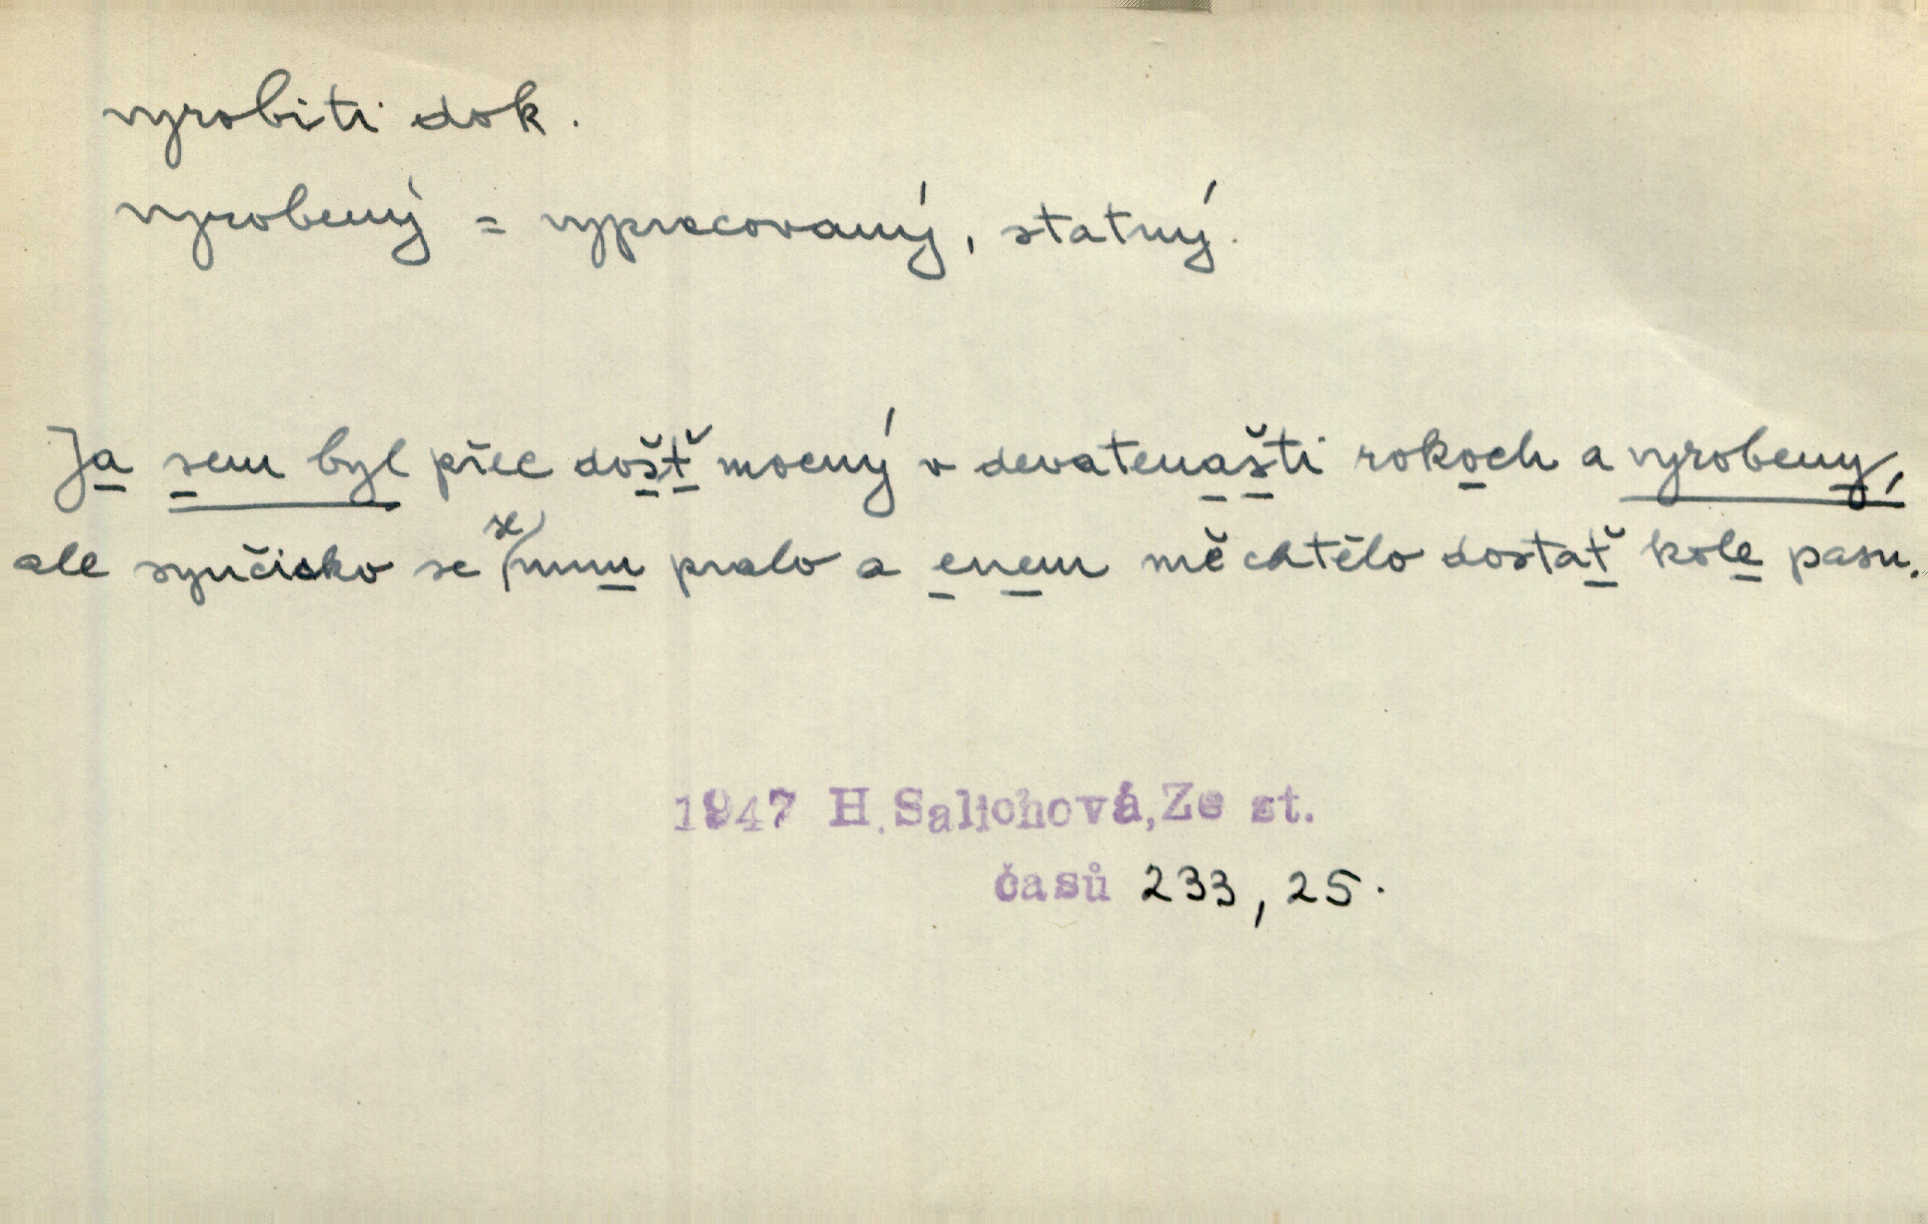 vyrobiti dok.
vyrobený = vypracovaný, statný.
Ja sem byl přec došť mocný v devatenašti rokoch a vyrobeny,
ale synčisko se se mnu pralo a enem mě chtělo dostať kole pasu.
1947 H. Salichová, Ze st.
časů 233, 25.